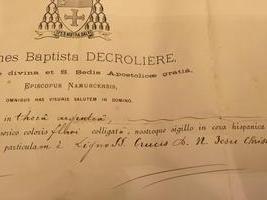 nes Baptista DECROLIERE,
divina et S. Sedis Apostolicæ gratia,
EPISCOPUS NAMURCENSIS,
OMNIBUS HAS VISURIS SALUTEM IN DOMINO.
in thecâ argenteâ
serico coloris colligatâ, nostroque sigillo in cera hispanica
particulam è Ligno SS. Crucis D. N. Jesu Christ